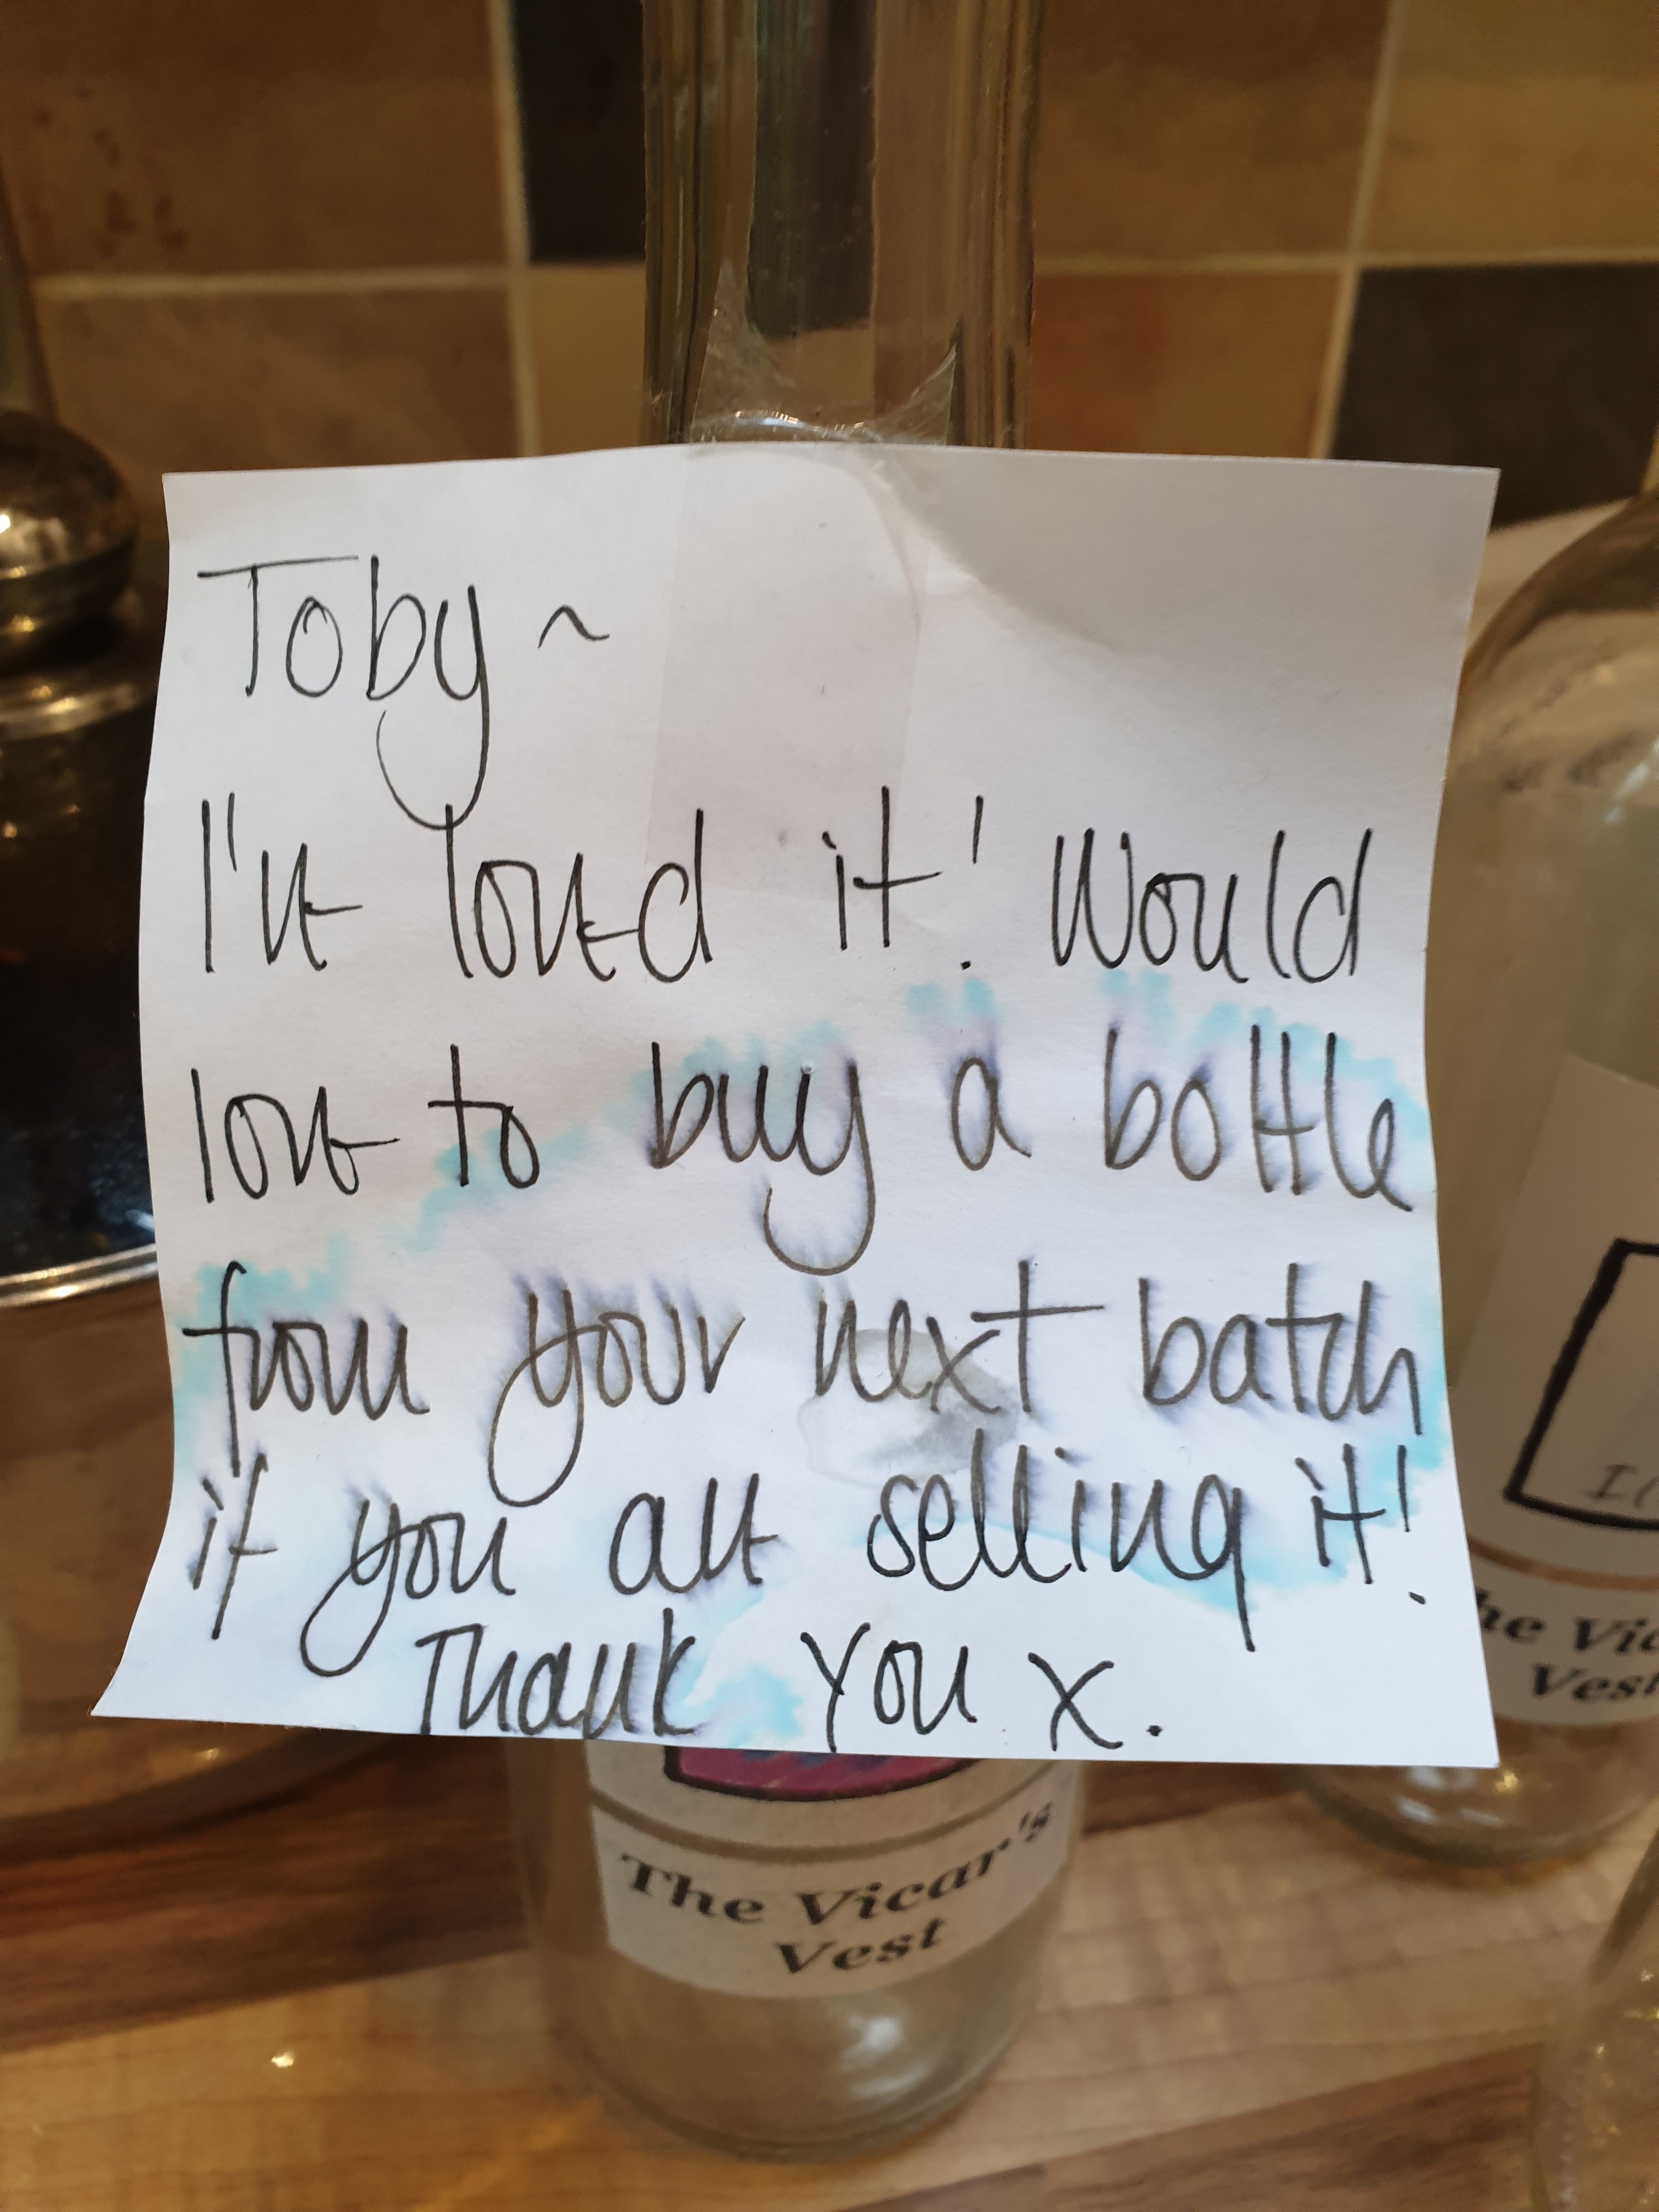 Toby ~
I've loved it! Would
love to buy a bottle
from your next batch
if you are selling it!
Thank you x.
The Vicar's
Vest
he Vic
Vest